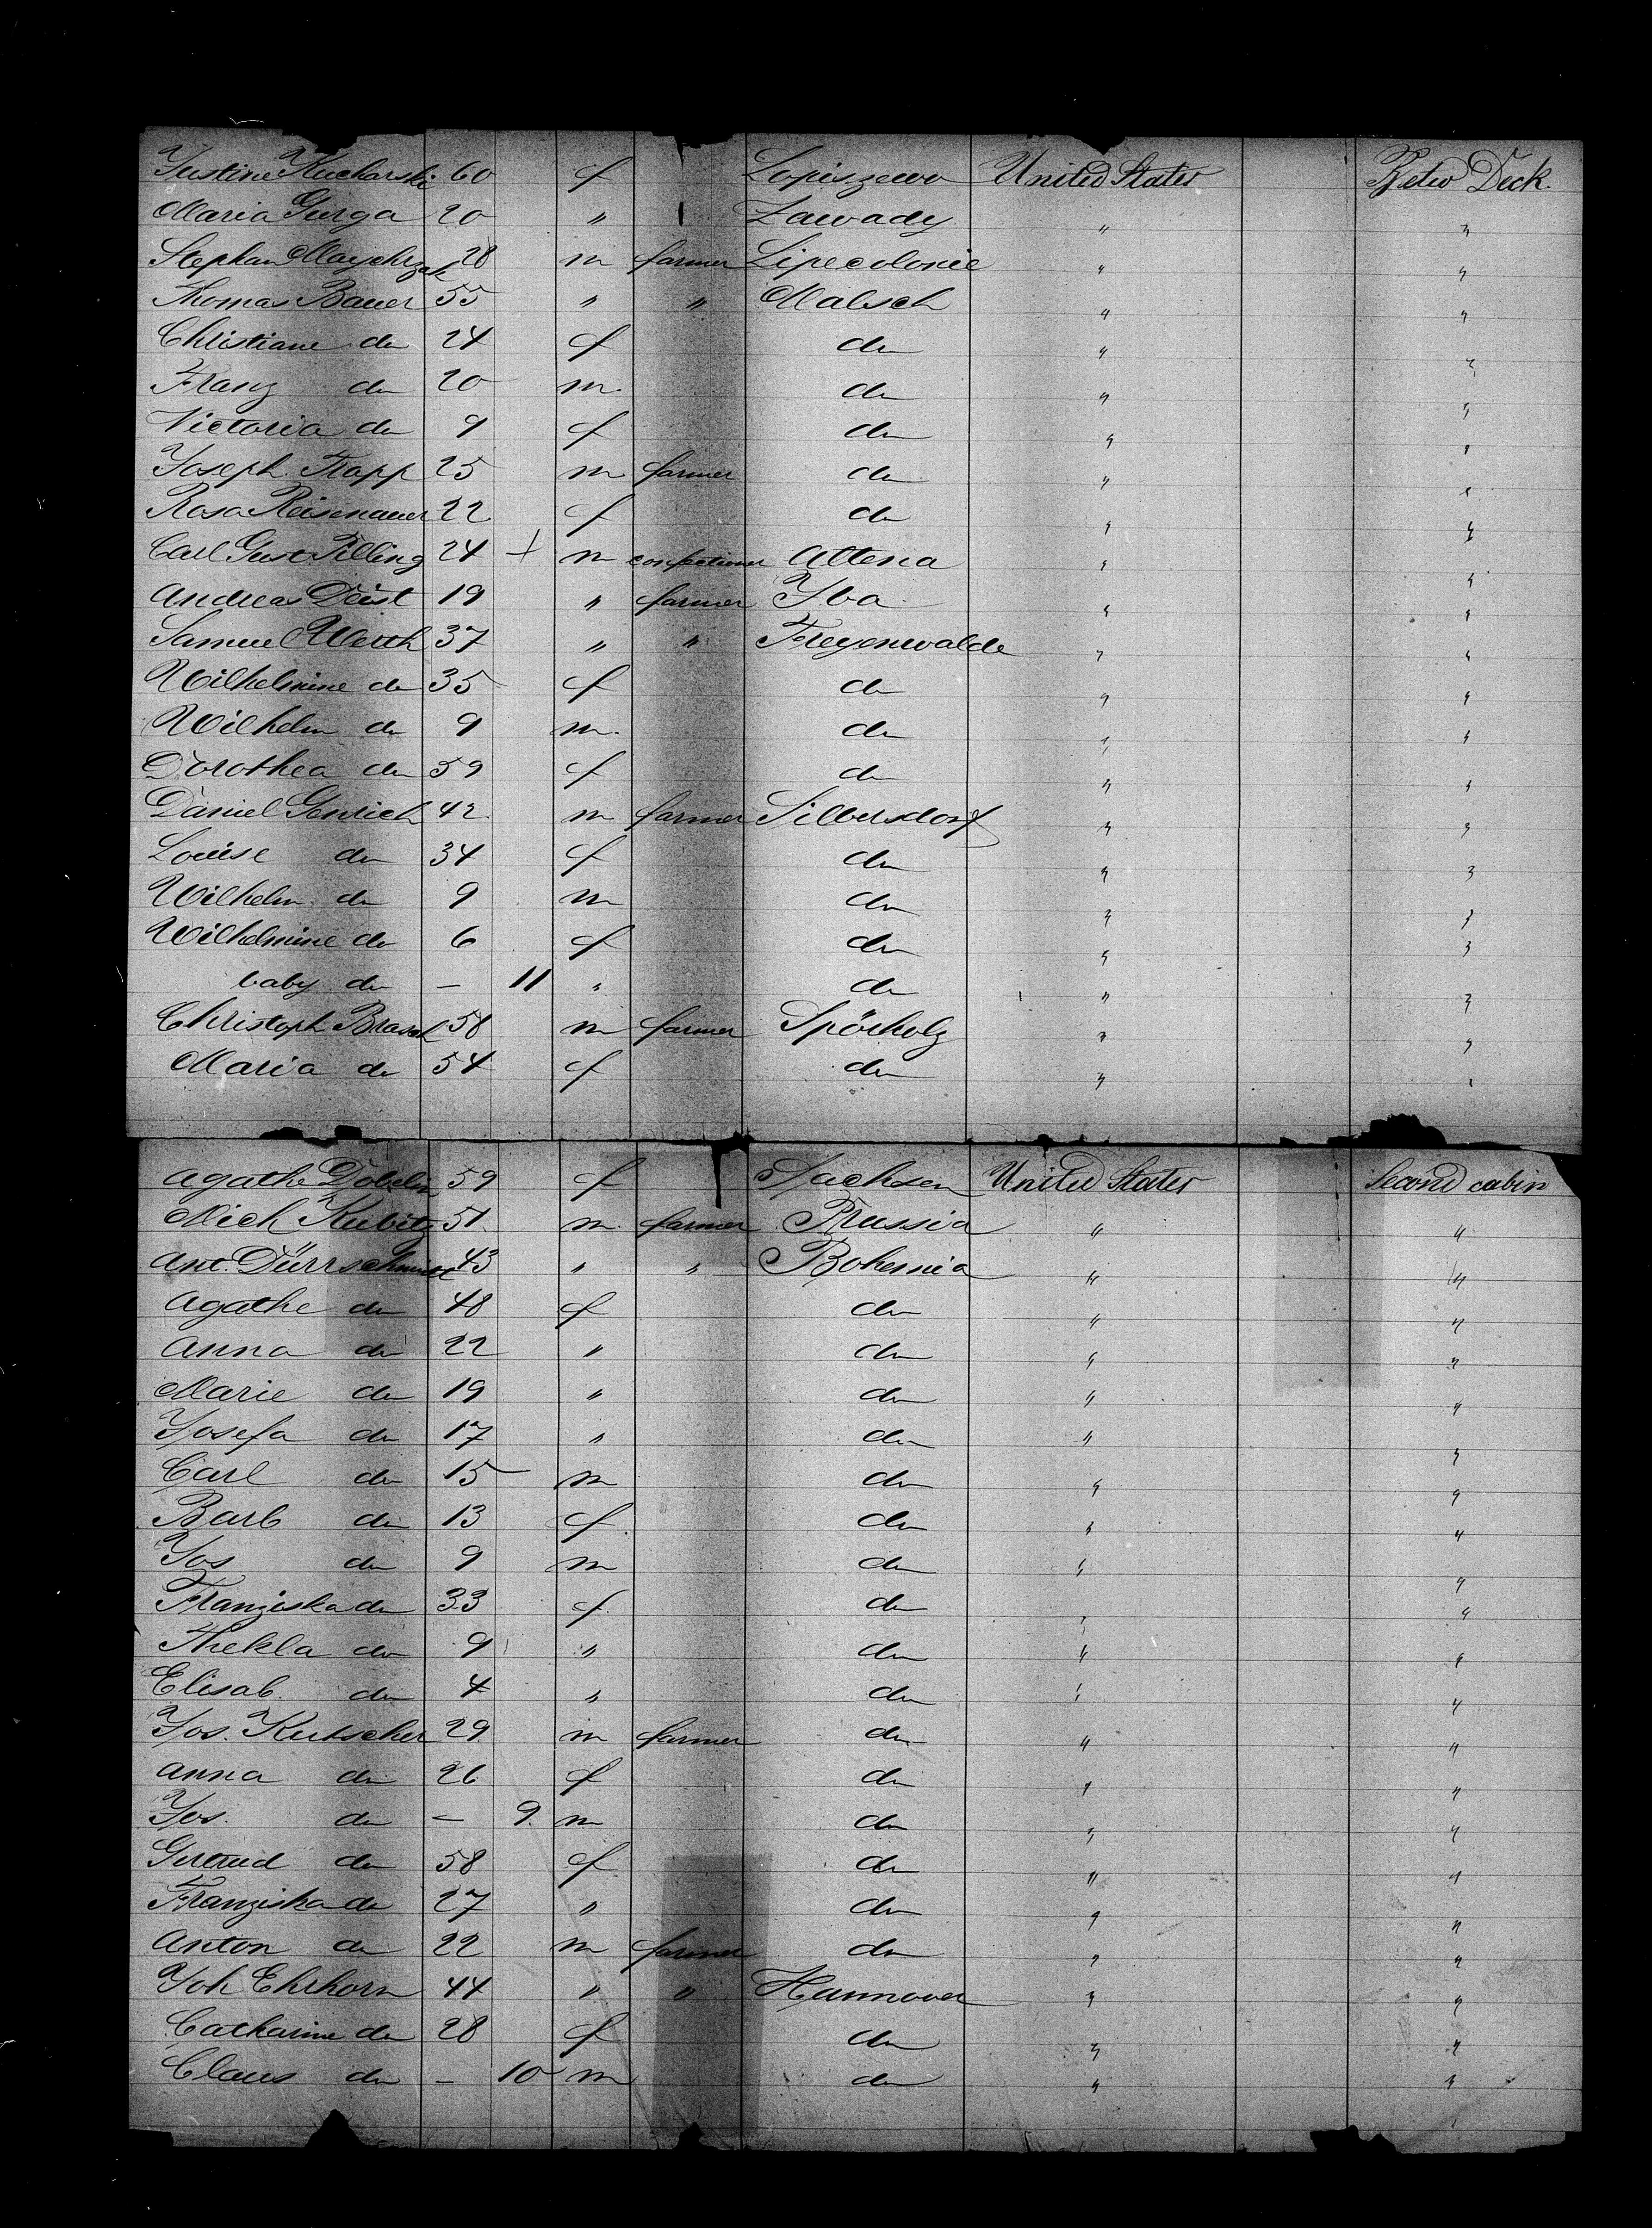 Justine Kucharski 60 f Lopiszewo United States Betw Deck.
Maria Gurga 20 " Zawady " "
Stephan Majchrzak 28 m farmer Lipecolonie " "
Thomas Bauer 55 " " Malsch " "
Christiane do 24 f do " "
Franz do 20 m. do " "
Victoria do 9 f do " "
Joseph Trapp 25 m farmer do " "
Rosa Reisenauer 22 f do " "
Carl Gust Pilling 24 + m confectioner Altena " "
Andreas Deist 19 " farmer Iba " "
Samuel Werth 37 " " Freyenwalde " "
Wilhelmine do 35 f do " "
Wilhelm do 9 m. do " "
Dorothea do 59 f do " "
Daniel Genrich 42 m farmer Silbersdorf " "
Louise do 34 f do " "
Wilhelm do 9 m do " "
Wilhelmine do 6 f do " "
baby do — 11 " do " "
Christoph Brasch 58 m farmer Spörholz " "
Maria do 54 f do " "
Agathe Dobelin 59 f Sachsen United States Second cabin
Mich Kubitz 51. m. farmer Prussia " "
Ant. Dürrschmidt 43 " " Bohemia " "
Agathe do 48 f do " "
Anna do 22 " do " "
Marie do 19 " do " "
Josefa do 17 " do " "
Carl do 15 m do " "
Barb do 13 f do " "
Jos do 9 m do " "
Franziska do 33 f. do " "
Thekla do 9 " do " "
Elisab. do 4 " do " "
Jos. Kutscher 29 m farmer do " "
Anna do 26 f do " "
Jos. do — 9. m do " "
Gertrud do 58 f do " "
Franziska do 27 " do " "
Anton do 22 m farmer do " "
Joh Ehrhorn 44 " " Hannover " "
Catharine do 28 f do " "
Claus do — 10 m do " "